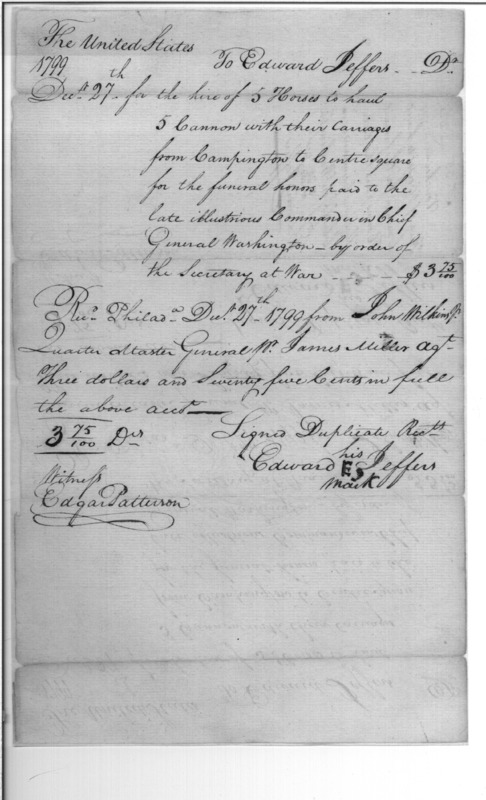 The United States
To Edward Jeffers Dr.
1799
Decr. 27th for the hire of 5 Horses to haul
5 Cannon with their Carriages
from Campington to Centre Square
for the funeral honors paid to the
late illustrious Commander in Chief
General Washington – by order of
the Secretary at War - - - $ 3 75/100
Recd. Philada. Decr. 27th 1799 from John Wilkins Jr.
Quarter Master General Wm. James Miller agt.
Three dollars and Seventy five Cents in full
the above acct.
3 75/100 Drs
Signed Duplicate Rects
his
Edward ES Jeffers
mark
Witness
Edgar Patterson